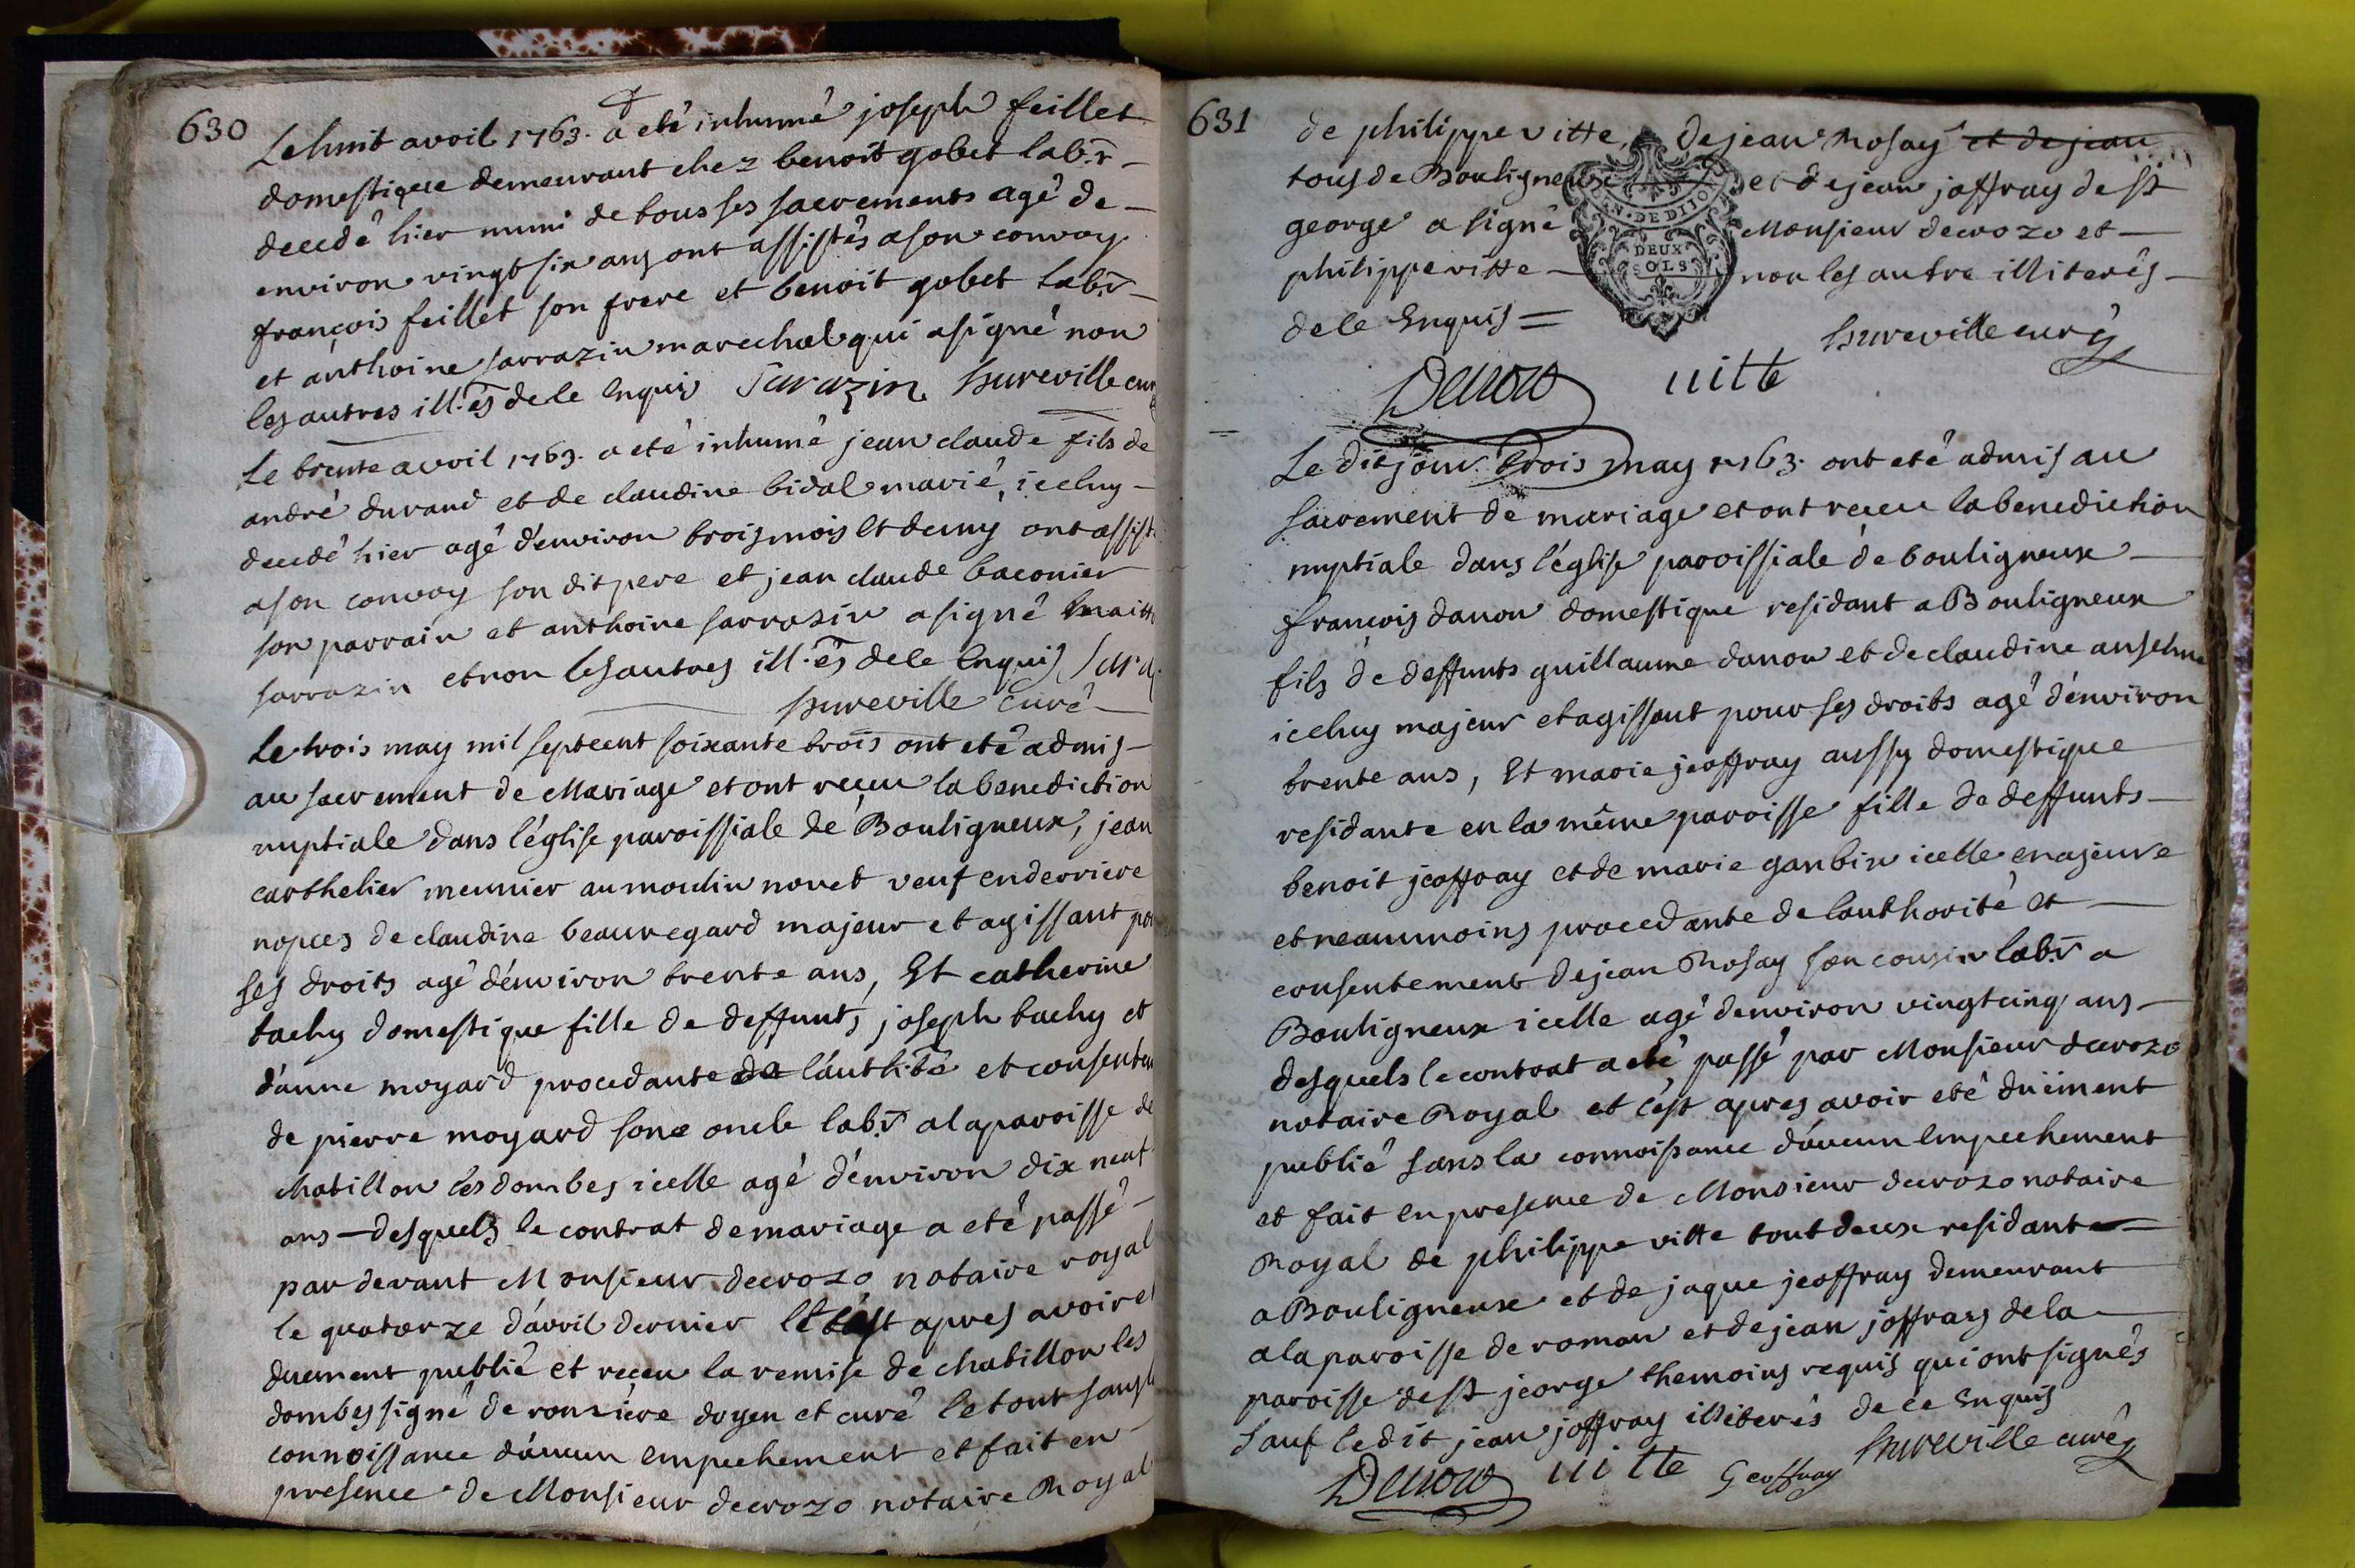 630
Le huit avril 1763. a eté inhumé joseph feillet
domestique demeurant chez benoit gobet lab.r
decedé hier muni de tous ses sacrements agé de
environ vingt six ans ont assistés a son convoy
françois feillet son frere et benoit gobet lab.r
et anthoine sarrazin marechal qui a signé non
les autres ill.és de le enquis Sarazin hureville curé
Le trente avril 1763. a eté inhumé jean claude fils de
andré durand et de claudine bidal marié, iceluy
decedé hier agé d'environ trois mois et demy ont assisté
a son convoy son dit pere et jean claude baconier
son parrain et anthoine sarrasin a signé
sarrazin et non les autres ill.és de le enquis Sara
hureville curé
Le trois may mil septcent soixante trois ont eté admis
au sacrement de Mariage et ont reçeu la benediction
nuptiale dans l'église paroissiale de Bouligneux, jean
carthelier meunier au moulin novet veuf en derriere
nopces de claudine beauregard majeur et agissant pour
ses droits agé d'environ trente ans, Et catherine
tachy domestique fille de deffunts joseph tachy et
d'anne moyard procedante de l'auth.té et consentem
de pierre moyard sone oncle lab.r a la paroisse de
chatillon les dombes icelle agé d'environ dix neuf
ans — desquels le contrat de mariage a eté passé
par devant Monsieur decrozo notaire royal
le quatorze d'avril dernier et c'est apres avoir eté
duement publié et reçeu la remise de chatillon les
dombes signé de ronziere doyen et curé le tout sans la
connoissance d'aucun empechement et fait en
presence de Monsieur decrozo notaire Royal
631
de philippe vitte, de jean Rosay et de jean
tous de Bouligneux et de jean joffray de st
george a signé Monsieur decrozo et
philippe vitte non les autre illiterés
de le Enquis =
GEN. DE DIJON
DEUX
SOLS
hureville curé
Decrozo vitte
Le dit jour trois may 1763. ont eté admis au
sacrement de mariage et ont reçeu la benediction
nuptiale dans l'église paroissiale de bouligneux
françois danon domestique residant a Bouligneux
fils de deffunts guillaume danon et de claudine anselme
iceluy majeur et agissant pour ses droits agé d'environ
trente ans, Et marie jeoffray aussy domestique
residante en la même paroisse fille de deffunts
benoit jeoffray et de marie ganbin icelle majeure
et neaumoins procedante de lauthorité et
consentement de jean Rosay son cousin lab.r a
Bouligneux icelle agé denviron vingt cinq ans
desquels le contrat a eté passé par Monsieur decrozo
notaire Royal et c'est apres avoir eté duëment
publié sans la connoissance d'aucun empechement
et fait en presence de Monsieur decrozo notaire
Royal de philippe vitte tout deux residant
a Bouligneux et de jaque jeoffray demeurant
a la paroisse de roman et de jean joffray de la
paroisse de st jeorge themoins requis qui ont signés
sauf le dit jean joffray illiterés de ce Enquis
Decrozo vitte Geoffray hureville curé